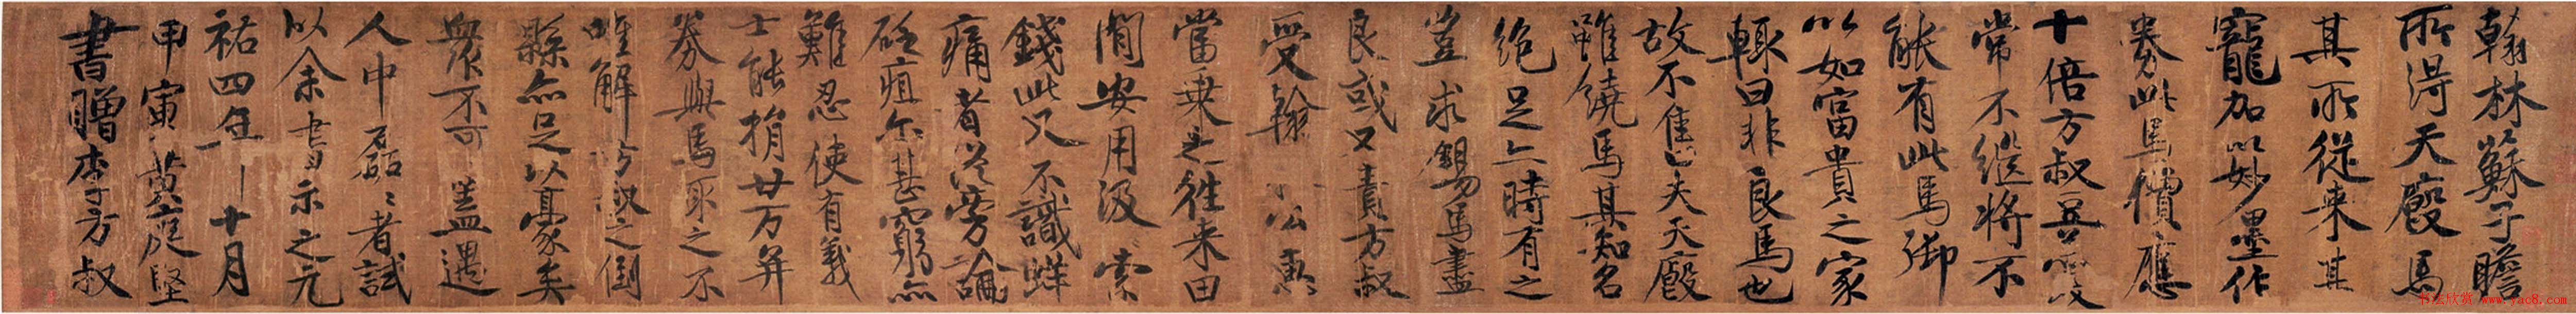 翰林蘇子瞻
所得天廄馬
其所從来甚
寵加以妙墨作
券此馬價應
十倍方叔豆羹
常不継将不
能有此馬御
以如富貴之家
輒曰非良馬也
故不售夫天廄
雖饒馬其知名
絶足亦時有之
豈求錫馬盡
良或又責方叔
受翰 公惠
當乗之往来田
閒安用汲索
錢此又不識蚌
痛者從旁論
砭疽尔甚窮亦
難忍使有義
士能捐廿万并
券與馬取之不
唯解方叔之倒
縣亦足以豪矣
衆不可蓋遇
人中磊〻者試
以余書示之元
祐四年十月
甲寅黄庭堅
書贈李方叔
书法欣赏 www.yac8.com